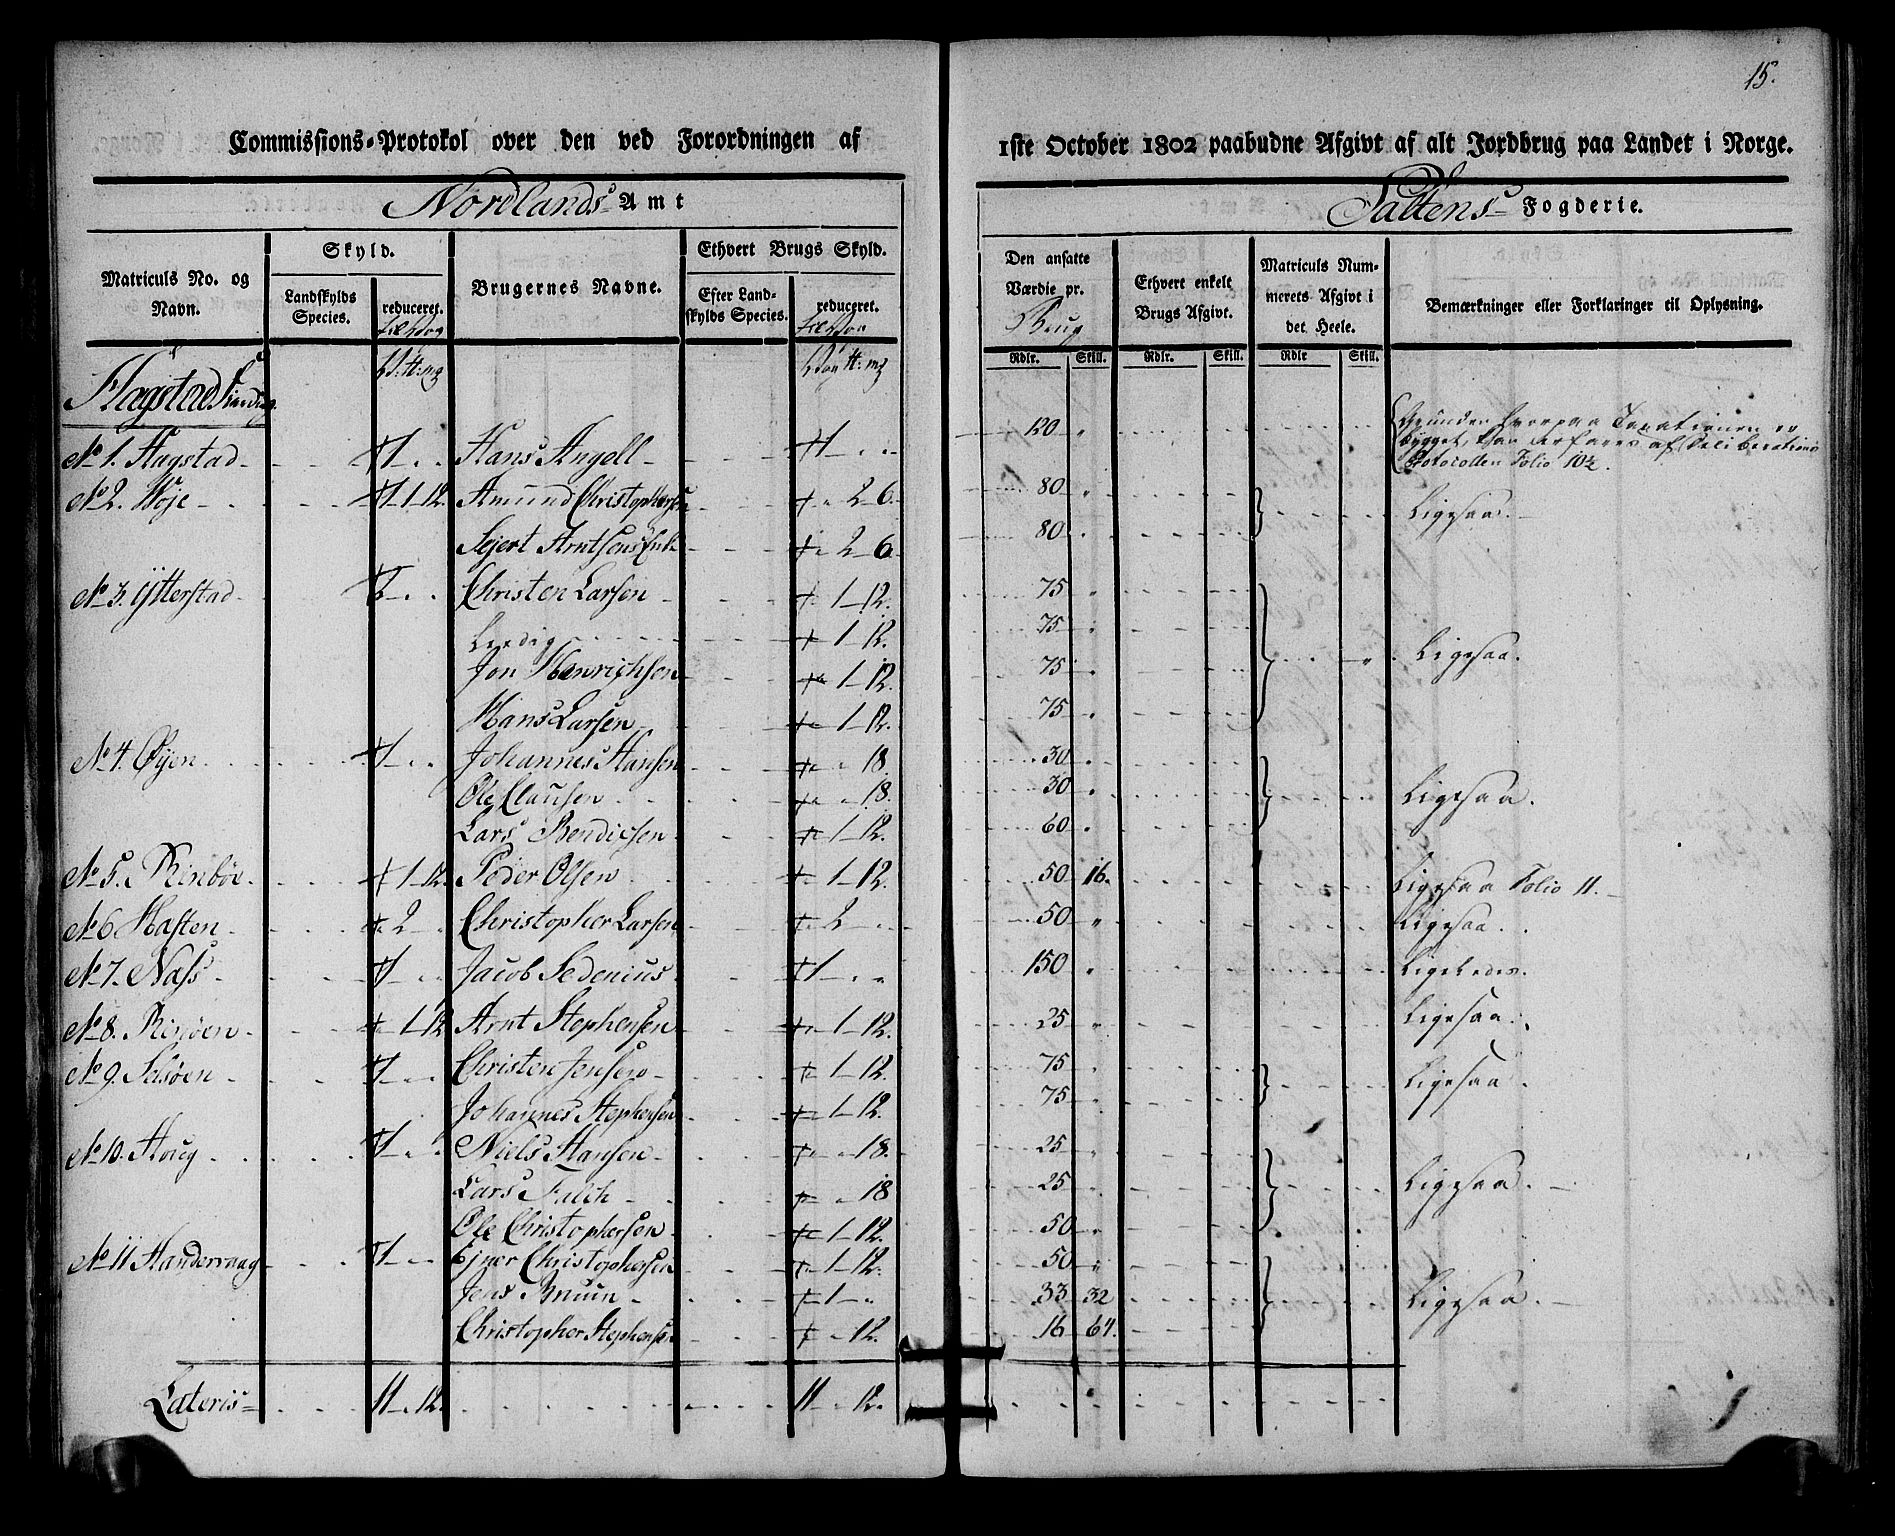 15.
Commissions-Protokol over den ved Forordningen af 1ste October 1802 paabudne Afgivt af alt Jordbrug paa Landet i Norge.
Nordlands Amt
Saltens Fogderie.
Matriculs No. og Navn.
Skyld.
Landskylds Species.
reduceret.
Brugernes Navne.
Ethvert Brugs Skyld.
Efter Landskylds Species.
reduceret.
Den ansatte Værdie pr.
Brug
Ethvert enkelt Brugs Afgivt.
Matriculs Nummerets Afgivt i det Heele.
Bemærkninger eller Forklaringer til Oplysning.
Rdlr. Skill. Rdlr. Skill. Rdlr Skill.
Hagstad Finding
No 1. Hagstad 1 Hans Angell 1 120 " Grunden hvorpaa Taxationen er bygget, kan erfares af Deliberations Protocollen Folio 10½.
No 2. Woje 1-1-12. Amund Christophersen 2-6. 80 " Ligesaa.
Sejert Arntsens Enke 2-6. 80
No 3. Ytterstad 2 Christen Larsen 1-12. 75 "
Leedig 1-12. 75 "
Jon Henrichsen 1-12. 75 " Ligesaa.
Hans Larsen 1-12. 75 "
No 4. Øyen 1 Johannes Hansen 18 30
Ole Clausen 18. 30 " Ligesaa.
Lars Bendicsen 1-12. 60
No 5. Rinbøe 1-12. Peder Olsen 1-12. 50 16. Ligesaa Folio 11.
No 6 Haften 2 Christopher Larsen 2 50 " Ligesaa.
No 7. Næss 1 Jacob Sedenius 1 150 " Ligeledes.
No 8. Ringøen 1-12 Arnt Stephensen 1-12. 25 " Ligesaa.
No 9. Selsøen 1 Christen Jensen 1-12. 75 " Ligesaa.
Johannes Stephensen 1-12. 75 "
No 10. Houg 1 Niels Hansen 18. 25 "
Lars Falch 18 25 Ligesaa.
Ole Christophersen 1-12. 50 "
No 11 Handervaag 1 Ejner Christophersen 1-12. 50 "
Jens Bruun 1 33 32 Ligesaa.
Christopher Stephensen 12. 16 64.
Lateris 11 12. 11 12.